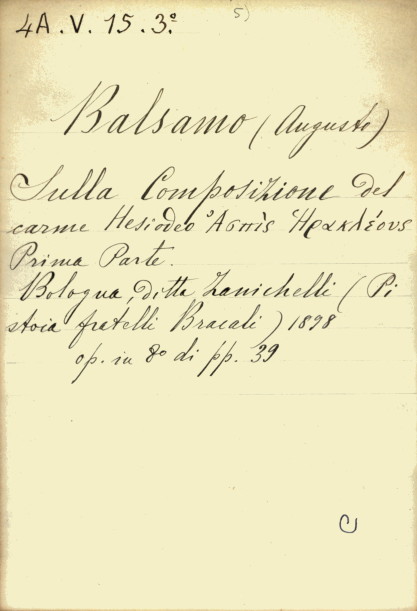 4A. V. 15. 3º.
5)
Balsamo (Augusto)
Sulla Composizione del
carme Hesiodeo Ἀσπὶς Ἡρακλέους
Prima Parte.
Bologna, ditta Zanichelli (Pi
stoia fratelli Bracali) 1898
op. in 8º di pp. 39
C